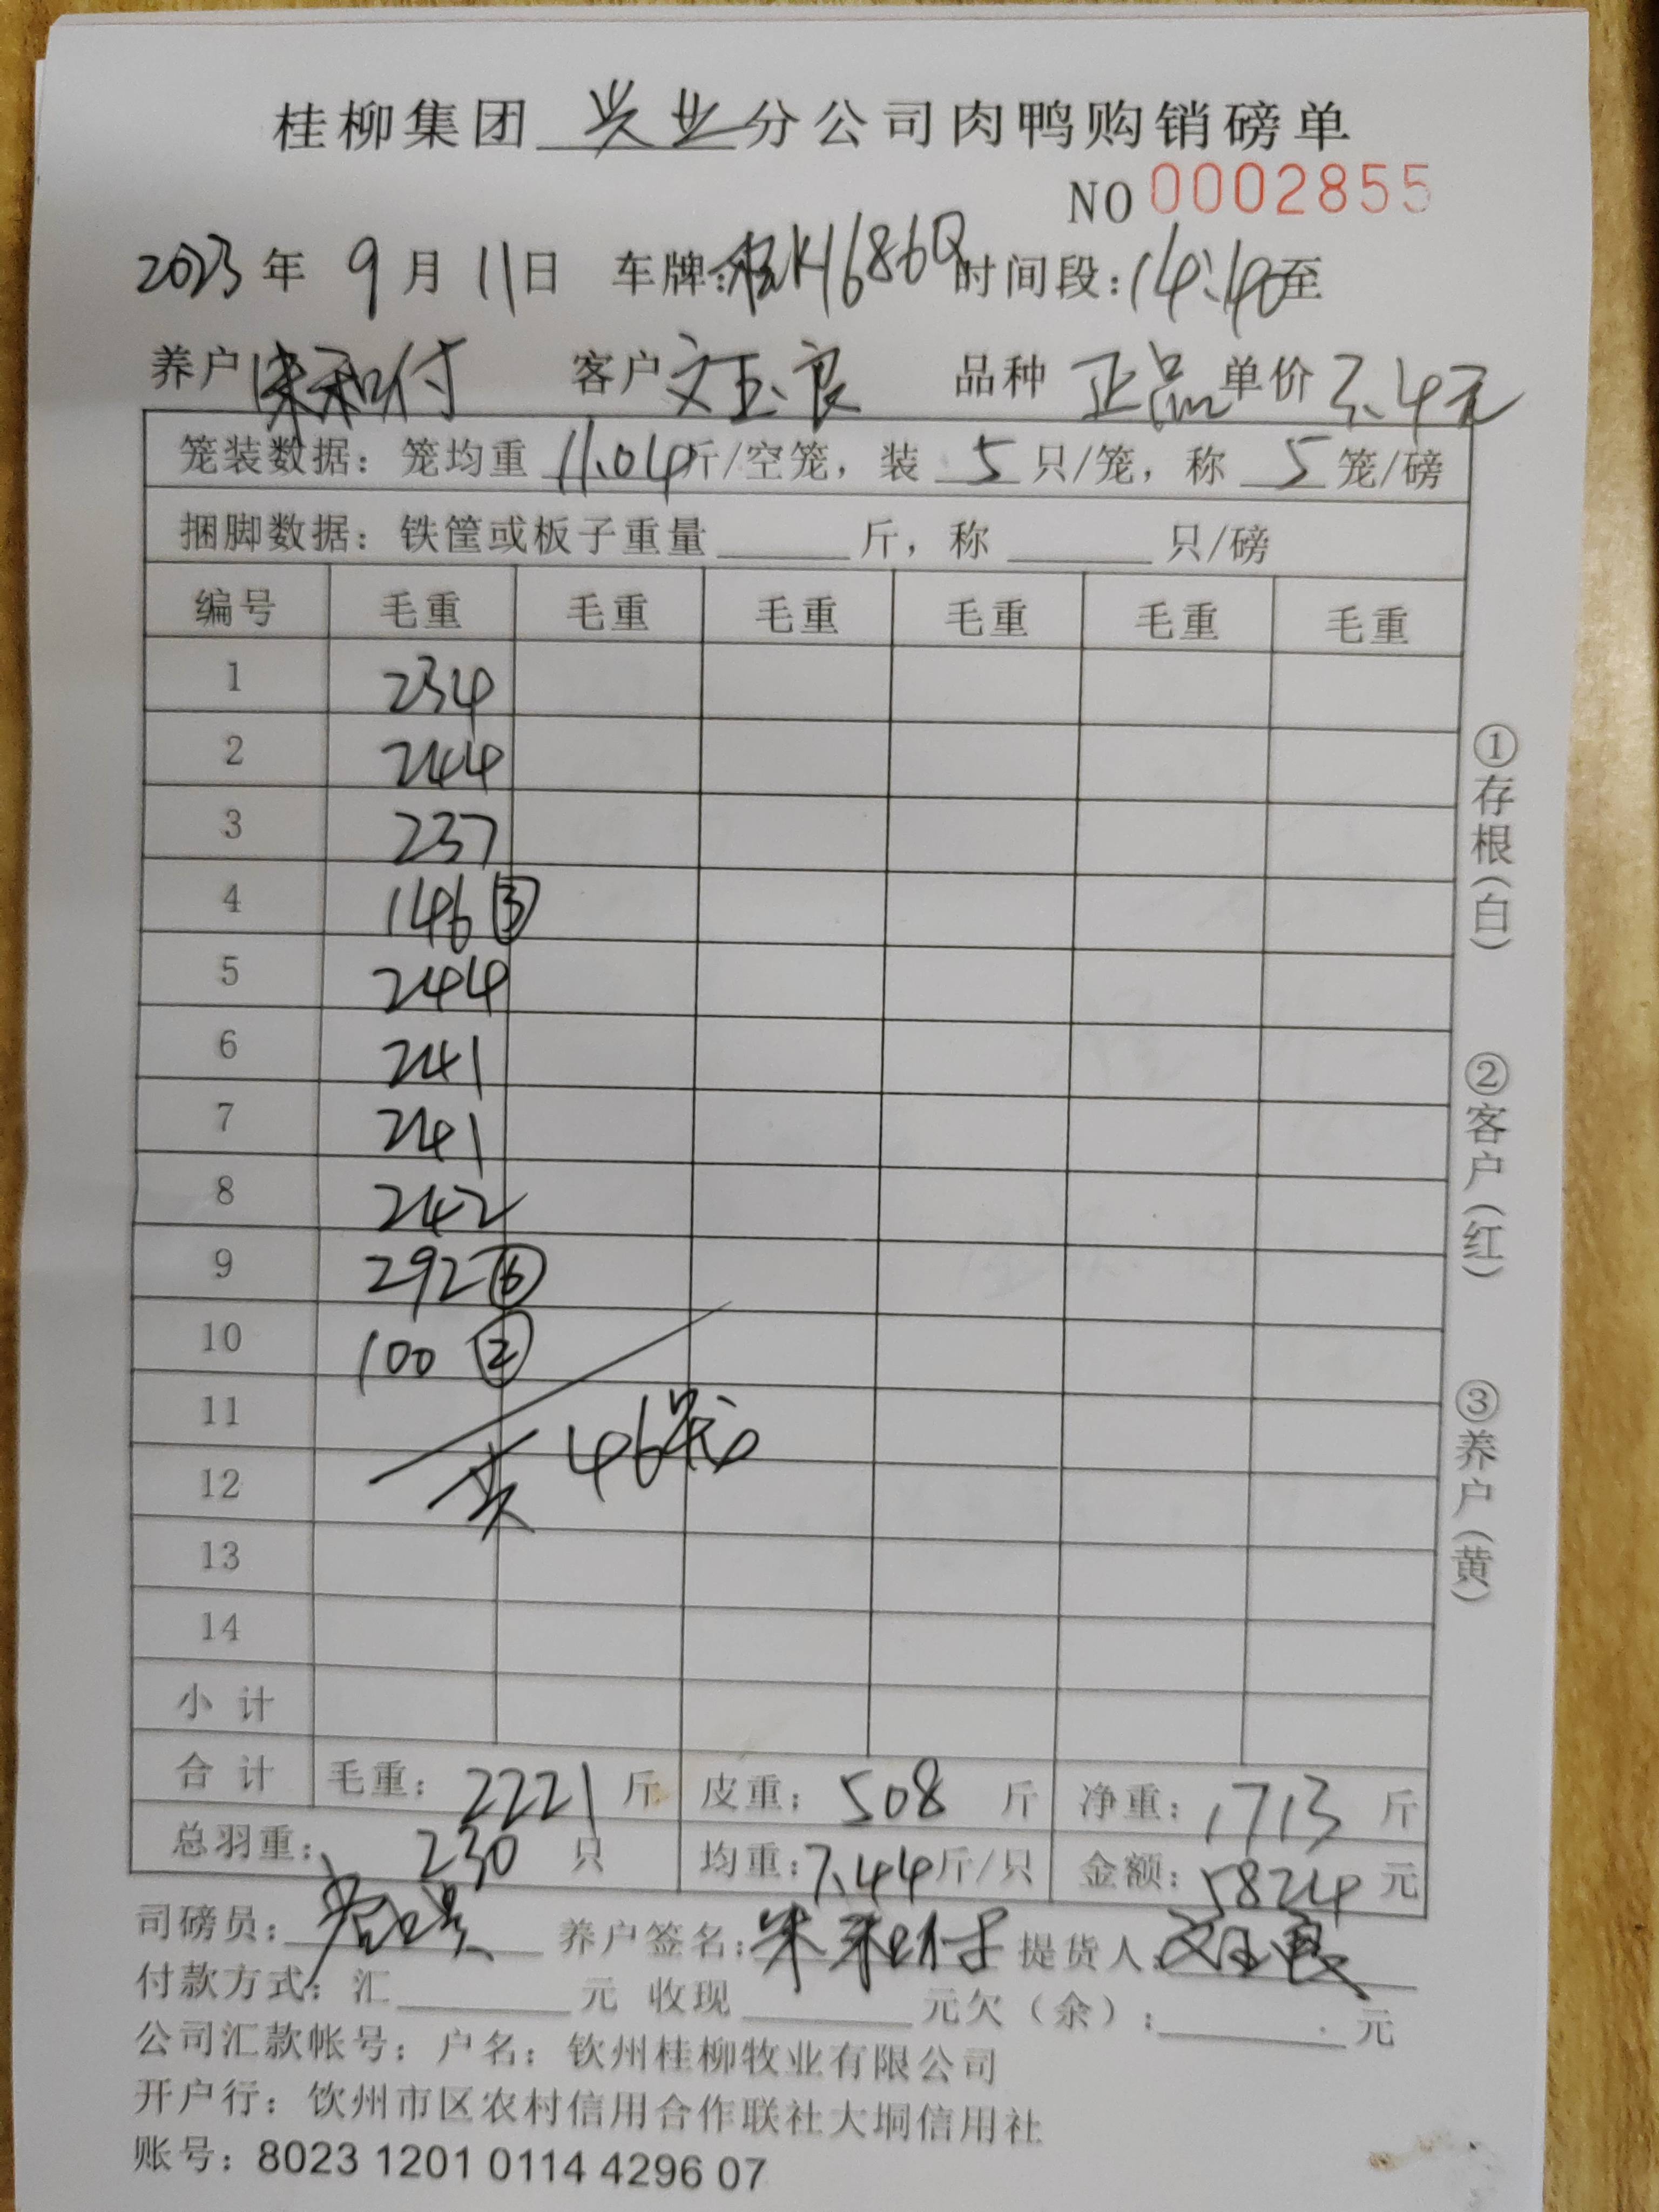 桂柳集团 兴业 分公司肉鸭购销磅单
NO 0002855
2023 年 9 月 11 日 车牌:桂K1686Q 时间段:14:40至
养户 朱和付 客户 文玉良 品种 正品 单价 3.4元
笼装数据：笼均重 11.04 斤/空笼，装 5 只/笼，称 5 笼/磅
捆脚数据：铁筐或板子重量 斤，称 只/磅
编号 毛重 毛重 毛重 毛重 毛重 毛重
1 234
2 244
3 237
4 146 ③
5 244
6 241
7 241
8 242
9 292 ⑥
10 100 ②
11
12 共 46笼
13
14
小 计
合 计 毛重：2221 斤 皮重：508 斤 净重：1713 斤
总羽重： 230 只 均重：7.44 斤/只 金额：5824 元
司磅员： 养户签名：朱和付 提货人：文玉良
付款方式：汇 元 收现 元欠（余）： 元
公司汇款帐号：户名：钦州桂柳牧业有限公司
开户行：钦州市区农村信用合作联社大垌信用社
账号：8023 1201 0114 4296 07
①存根（白）
②客户（红）
③养户（黄）